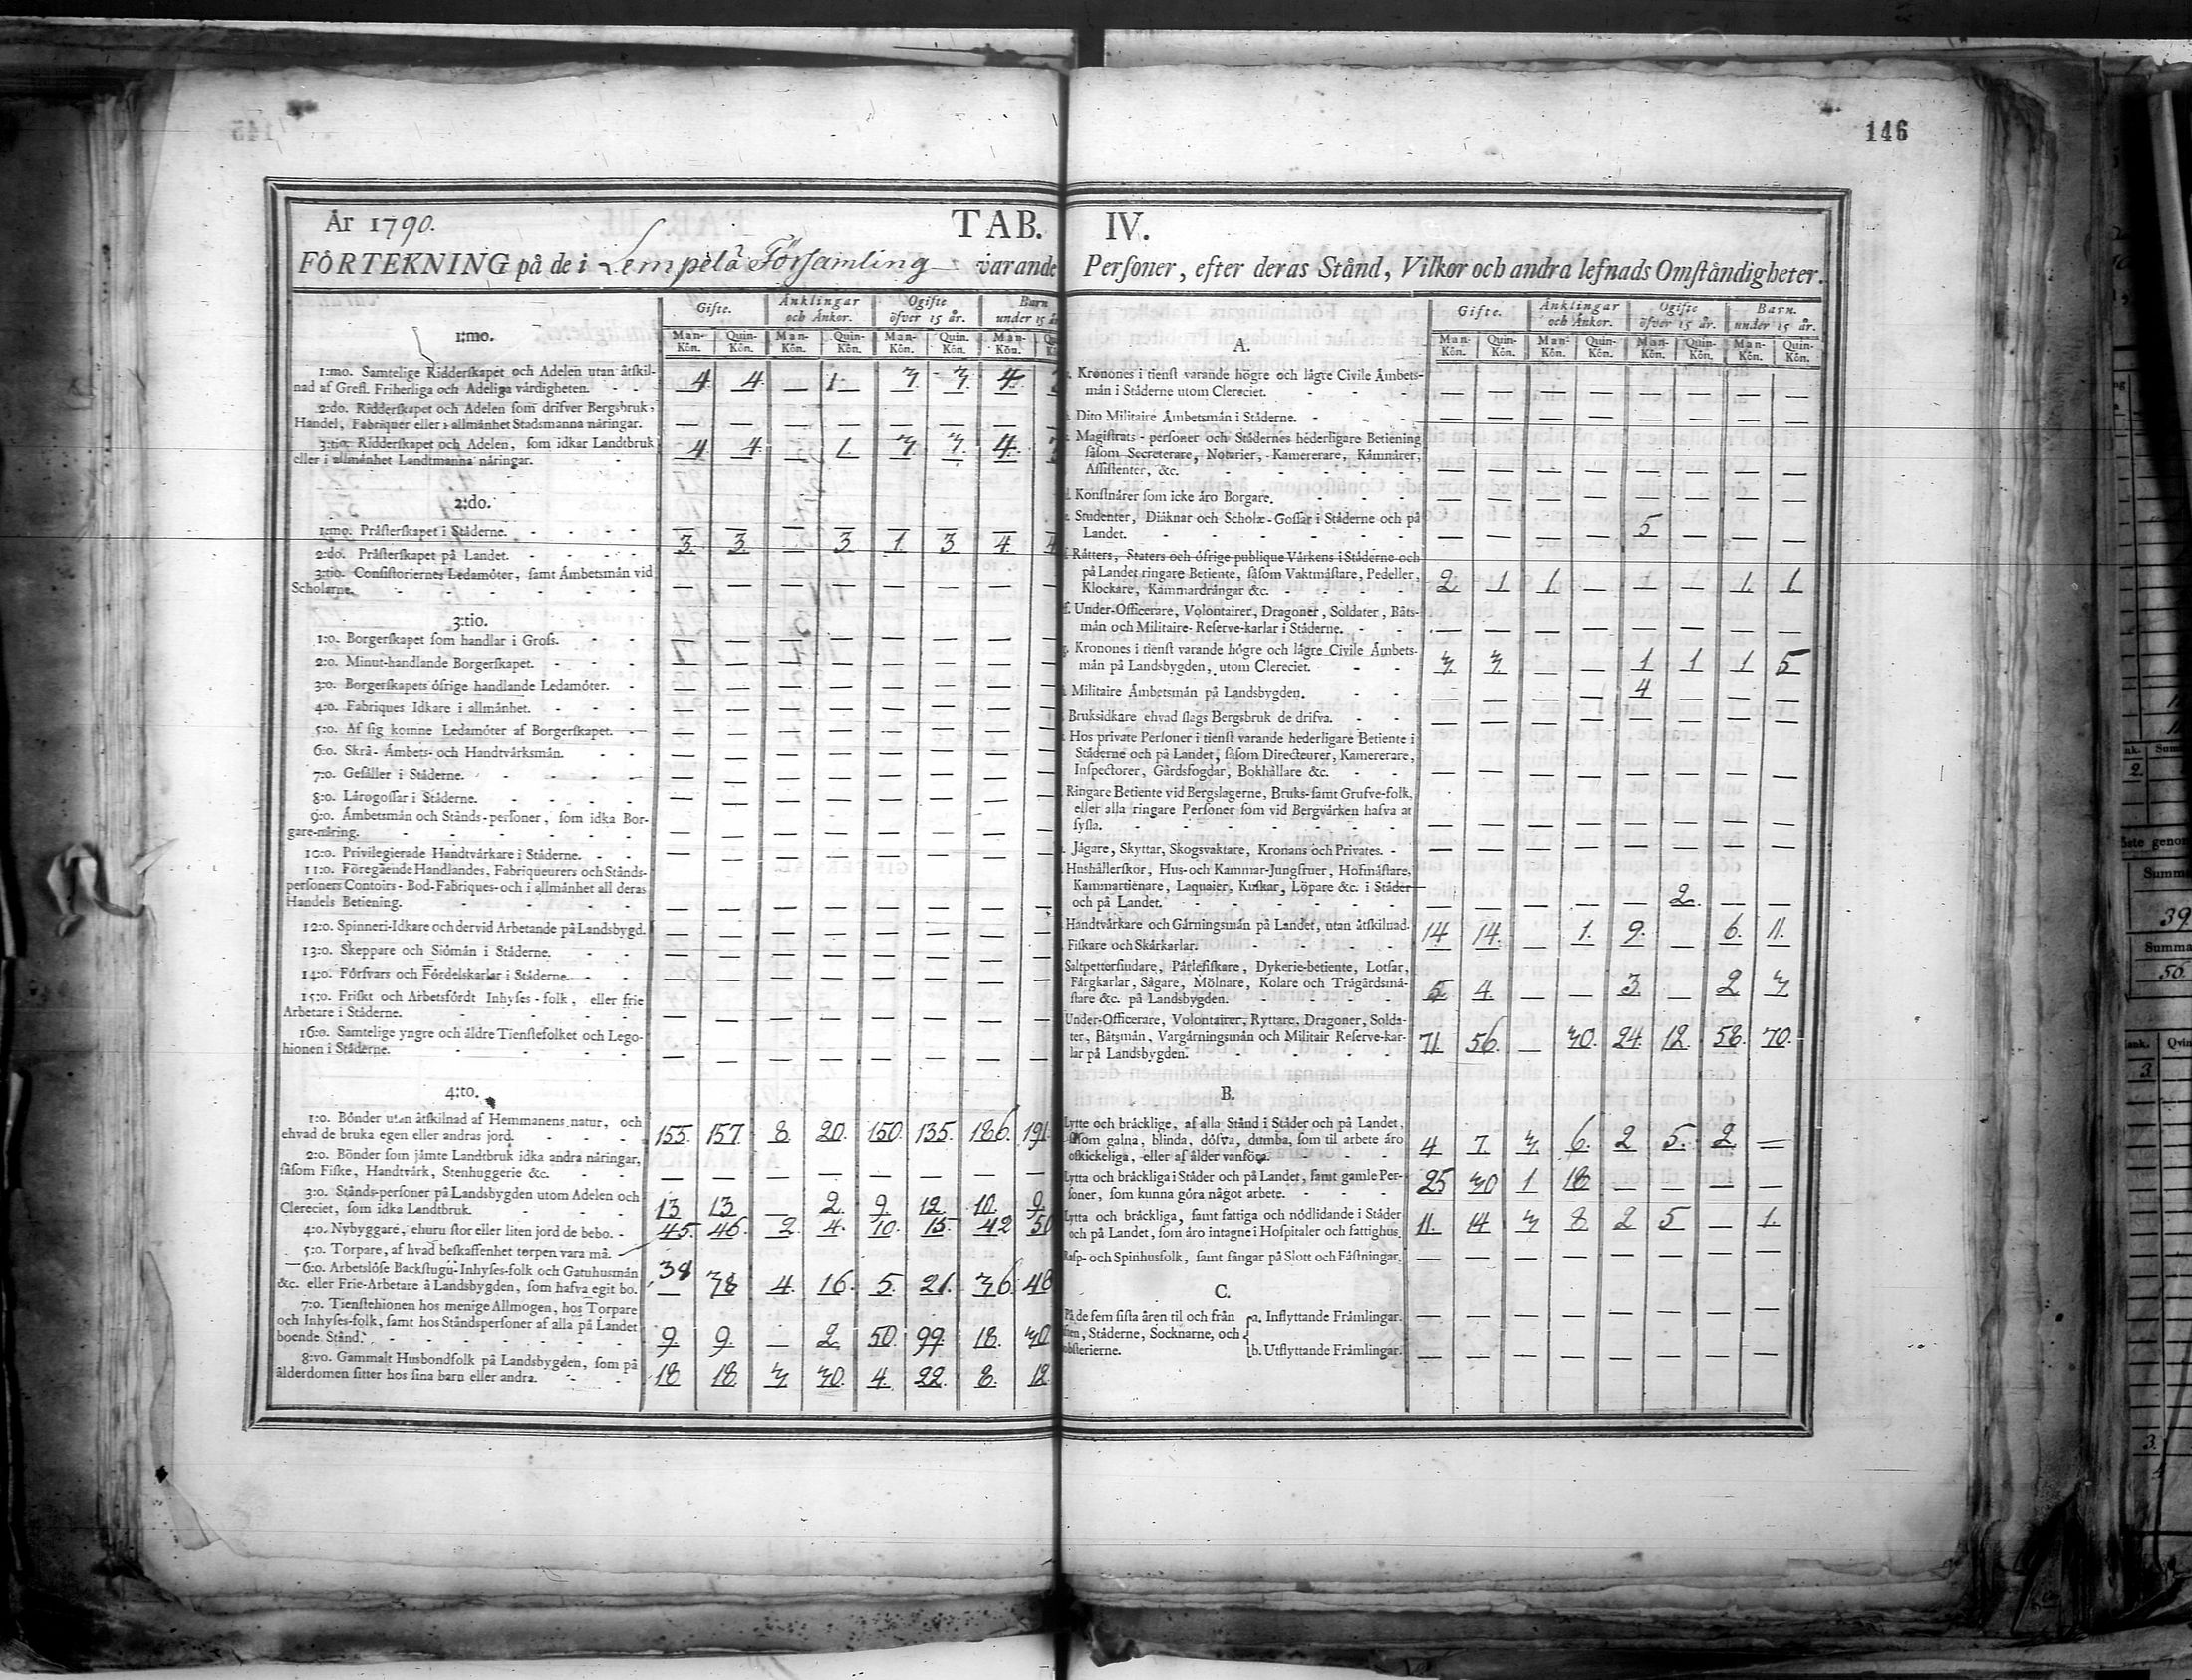 146
År 1790. TAB. IV.
FÖRTEKNING på de i Lempelä Församling varande Personer, efter deras Stånd, Vilkor och andra lefnads Omståndigheter.
Gifte. Änklingar och Änkor. Ogifte öfver 15 år. Barn under 15
Man-Kön. Quin-Kön. Man-Kön. Quin-Kön. Man-Kön. Quin-Kön. Man-Kön.
1:mo.
1:mo. Samtelige Ridderskapet och Adelen utan åtskil-
nad af Grefl. Friherliga och Adeliga vårdigheten. 4 4. — 1 3. 3. 4.
2:do. Ridderskapet och Adelen som drifver Bergsbruk,
Handel, Fabriquer eller i allmånhet Stadsmanna nåringar. — — — — — — —
3:tio. Ridderskapet och Adelen, som idkar Landtbruk
eller i allmånhet Landtmanna nåringar. 4 4. — 1. 3. 3. 4.
2:do.
1:mo. Pråsterskapet i Ståderne. — — — — — — —
2:do. Pråsterskapet på Landet. 3. 3. — 3 1. 3 4.
3:tio. Consistoriernes Ledamöter, samt Åmbetsmån vid
Scholarne. — — — — — — —
3:tio.
1:o. Borgerskapet som handlar i Gross. — — — — — — —
2:o. Minut-handlande Borgerskapet. — — — — — — —
3:o. Borgerskapets öfrige handlande Ledamöter. — — — — — — —
4:o. Fabriques Idkare i allmånhet. — — — — — — —
5:o. Af sig komne Ledamöter af Borgerskapet. — — — — — — —
6:o. Skrå- Åmbets- och Handtvårksmån. — — — — — — —
7:o. Gesåller i Ståderne. — — — — — — —
8:o. Lårogossar i Ståderne. — — — — — — —
9:o. Åmbetsmån och Stånds-personer, som idka Bor-
gare-nåring. — — — — — — —
10:o. Privilegierade Handtvårkare i Ståderne. — — — — — — —
11:o. Föregående Handlandes, Fabriqueurers och Stånds-
personers Contoirs- Bod-Fabriques-och i allmånhet all deras
Handels Betiening. — — — — — — —
12:o. Spinneri-Idkare och dervid Arbetande på Landsbygd. — — — — — — —
13:o. Skeppare och Siömån i Ståderne. — — — — — — —
14:o. Försvars och Fördelskarlar i Ståderne. — — — — — — —
15:o. Friskt och Arbetsfördt Inhyses-folk, eller frie
Arbetare i Ståderne. — — — — — — —
16:o. Samtelige yngre och åldre Tienstefolket och Lego-
hionen i Ståderne. — — — — — — —
4:to.
1:o. Bönder utan åtskilnad af Hemmanens natur, och
ehvad de bruka egen eller andras jord. 155. 157. 8. 20. 150. 135. 186. 191.
2:o. Bönder som jåmte Landtbruk idka andra nåringar,
såsom Fiske, Handtvårk, Stenhuggerie &c. — — — — — — — —
3:o. Stånds-personer på Landsbygden utom Adelen och
Clereciet, som idka Landtbruk. 13 13 — 2. 9. 12. 10. 9.
4:o. Nybyggare, ehuru stor eller liten jord de bebo. 45. 46. 2. 4. 10. 15 42 50
5:o. Torpare, af hvad beskaffenhet torpen vara må.
6:o. Arbetslöse Backstugu-Inhyses-folk och Gatuhusmån
&c. eller Frie-Arbetare å Landsbygden, som hafva egit bo. 38 38 4. 16. 5. 21. 36. 40
7:o. Tienstehionen hos menige Allmogen, hos Torpare
och Inhyses-folk, samt hos Ståndspersoner af alla på Landet
boende Stånd. 9. 9. — 2. 50. 99. 18. 30
8:vo. Gammalt Husbondfolk på Landsbygden, som på
ålderdomen sitter hos sina barn eller andra. 18 18. 3. 30. 4. 22. 8. 12.
Gifte. Änklingar och Änkor. Ogifte öfver 15 år. Barn. under 15 år.
Man-Kön. Quin-Kön. Man-Kön. Quin-Kön. Man-Kön. Quin-Kön. Man-Kön. Quin-Kön.
A.
Kronones i tienst varande högre och lågre Civile Åmbets-
mån i Ståderne utom Clereciet. — — — — — — — —
Dito Militaire Åmbetsmån i Ståderne. — — — — — — — —
Magistrats-personer och Stådernes hederligare Betiening
såsom Secreterare, Notarier, Kamererare, Kåmnårer,
Assistenter, &c. — — — — — — — —
Konstnårer som icke åro Borgare. — — — — — — — —
Studenter, Diåknar och Scholæ-Gossar i Ståderne och på
Landet. — — — — 5 — — —
Råtters, Staters och öfrige publique Vårkens i Ståderne och
på Landet ringare Betiente, såsom Vaktmåstare, Pedeller,
Klockare, Kammardrångar &c. 2 1 1 — 1 1 1. 1.
Under-Officerare, Volontairer, Dragoner, Soldater, Båts-
mån och Militaire-Reserve-karlar i Ståderne. — — — — — — — —
Kronones i tienst varande högre och lågre Civile Åmbets-
mån på Landsbygden, utom Clereciet. 3. 3. — — 1 1 1 5
Militaire Åmbetsmån på Landsbygden. — — — — 4 — — —
Bruksidkare ehvad slags Bergsbruk de drifva. — — — — — — — —
Hos private Personer i tienst varande hederligare Betiente i
Ståderne och på Landet, såsom Directeurer, Kamererare,
Inspectorer, Gårdsfogdar, Bokhållare &c. — — — — — — — —
Ringare Betiente vid Bergslagerne, Bruks- samt Grufve-folk,
eller alla ringare Personer som vid Bergvårken hafva at
sysla. — — — — — — — —
Jågare, Skyttar, Skogsvaktare, Kronans och Privates. — — — — — — — —
Hushållerskor, Hus- och Kammar-Jungfruer, Hofmåstare,
Kammartienare, Laquaier, Kuskar, Löpare &c. i Ståder
och på Landet. — — — — — 2. — —
Handtvårkare och Gårningsmån på Landet, utan åtskilnad. 14 14. — 1. 9. — 6. 11.
Fiskare och Skårkarlar.
Saltpettersiudare, Pårlefiskare, Dykerie-betiente, Lotsar,
Fårgkarlar, Sågare, Mölnare, Kolare och Trågårdsmå-
stare &c. på Landsbygden. 5 4. — — 3. — 2 3.
Under-Officerare, Volontairer, Ryttare, Dragoner, Solda-
ter, Båtsmån, Vargårningsmån och Militair Reserve-kar-
lar på Landsbygden. 71. 56. — 30. 24. 12. 58. 70.
B.
Lytte och bråcklige, af alla Stånd i Ståder och på Landet,
såsom galna, blinda, döfva, dumba, som til arbete åro
oskickeliga, eller af ålder vanföra. 4 7. 3. 6. 2 5. 2. —
Lytta och bråckliga i Ståder och på Landet, samt gamle Per-
soner, som kunna göra något arbete. 25 30 1 18 — — — —
Lytta och bråckliga, samt fattiga och nödlidande i Ståder
och på Landet, som åro intagne i Hospitaler och fattighus. 11. 14 3 8 2 5 — 1.
Rasp- och Spinhusfolk, samt fångar på Slott och Fåstningar. — — — — — — — —
C.
På de fem sista åren til och från a. Inflyttande Fråmlingar. — — — — — — — —
Ståderne, Socknarne, och
b. Utflyttande Fråmlingar. — — — — — — — —